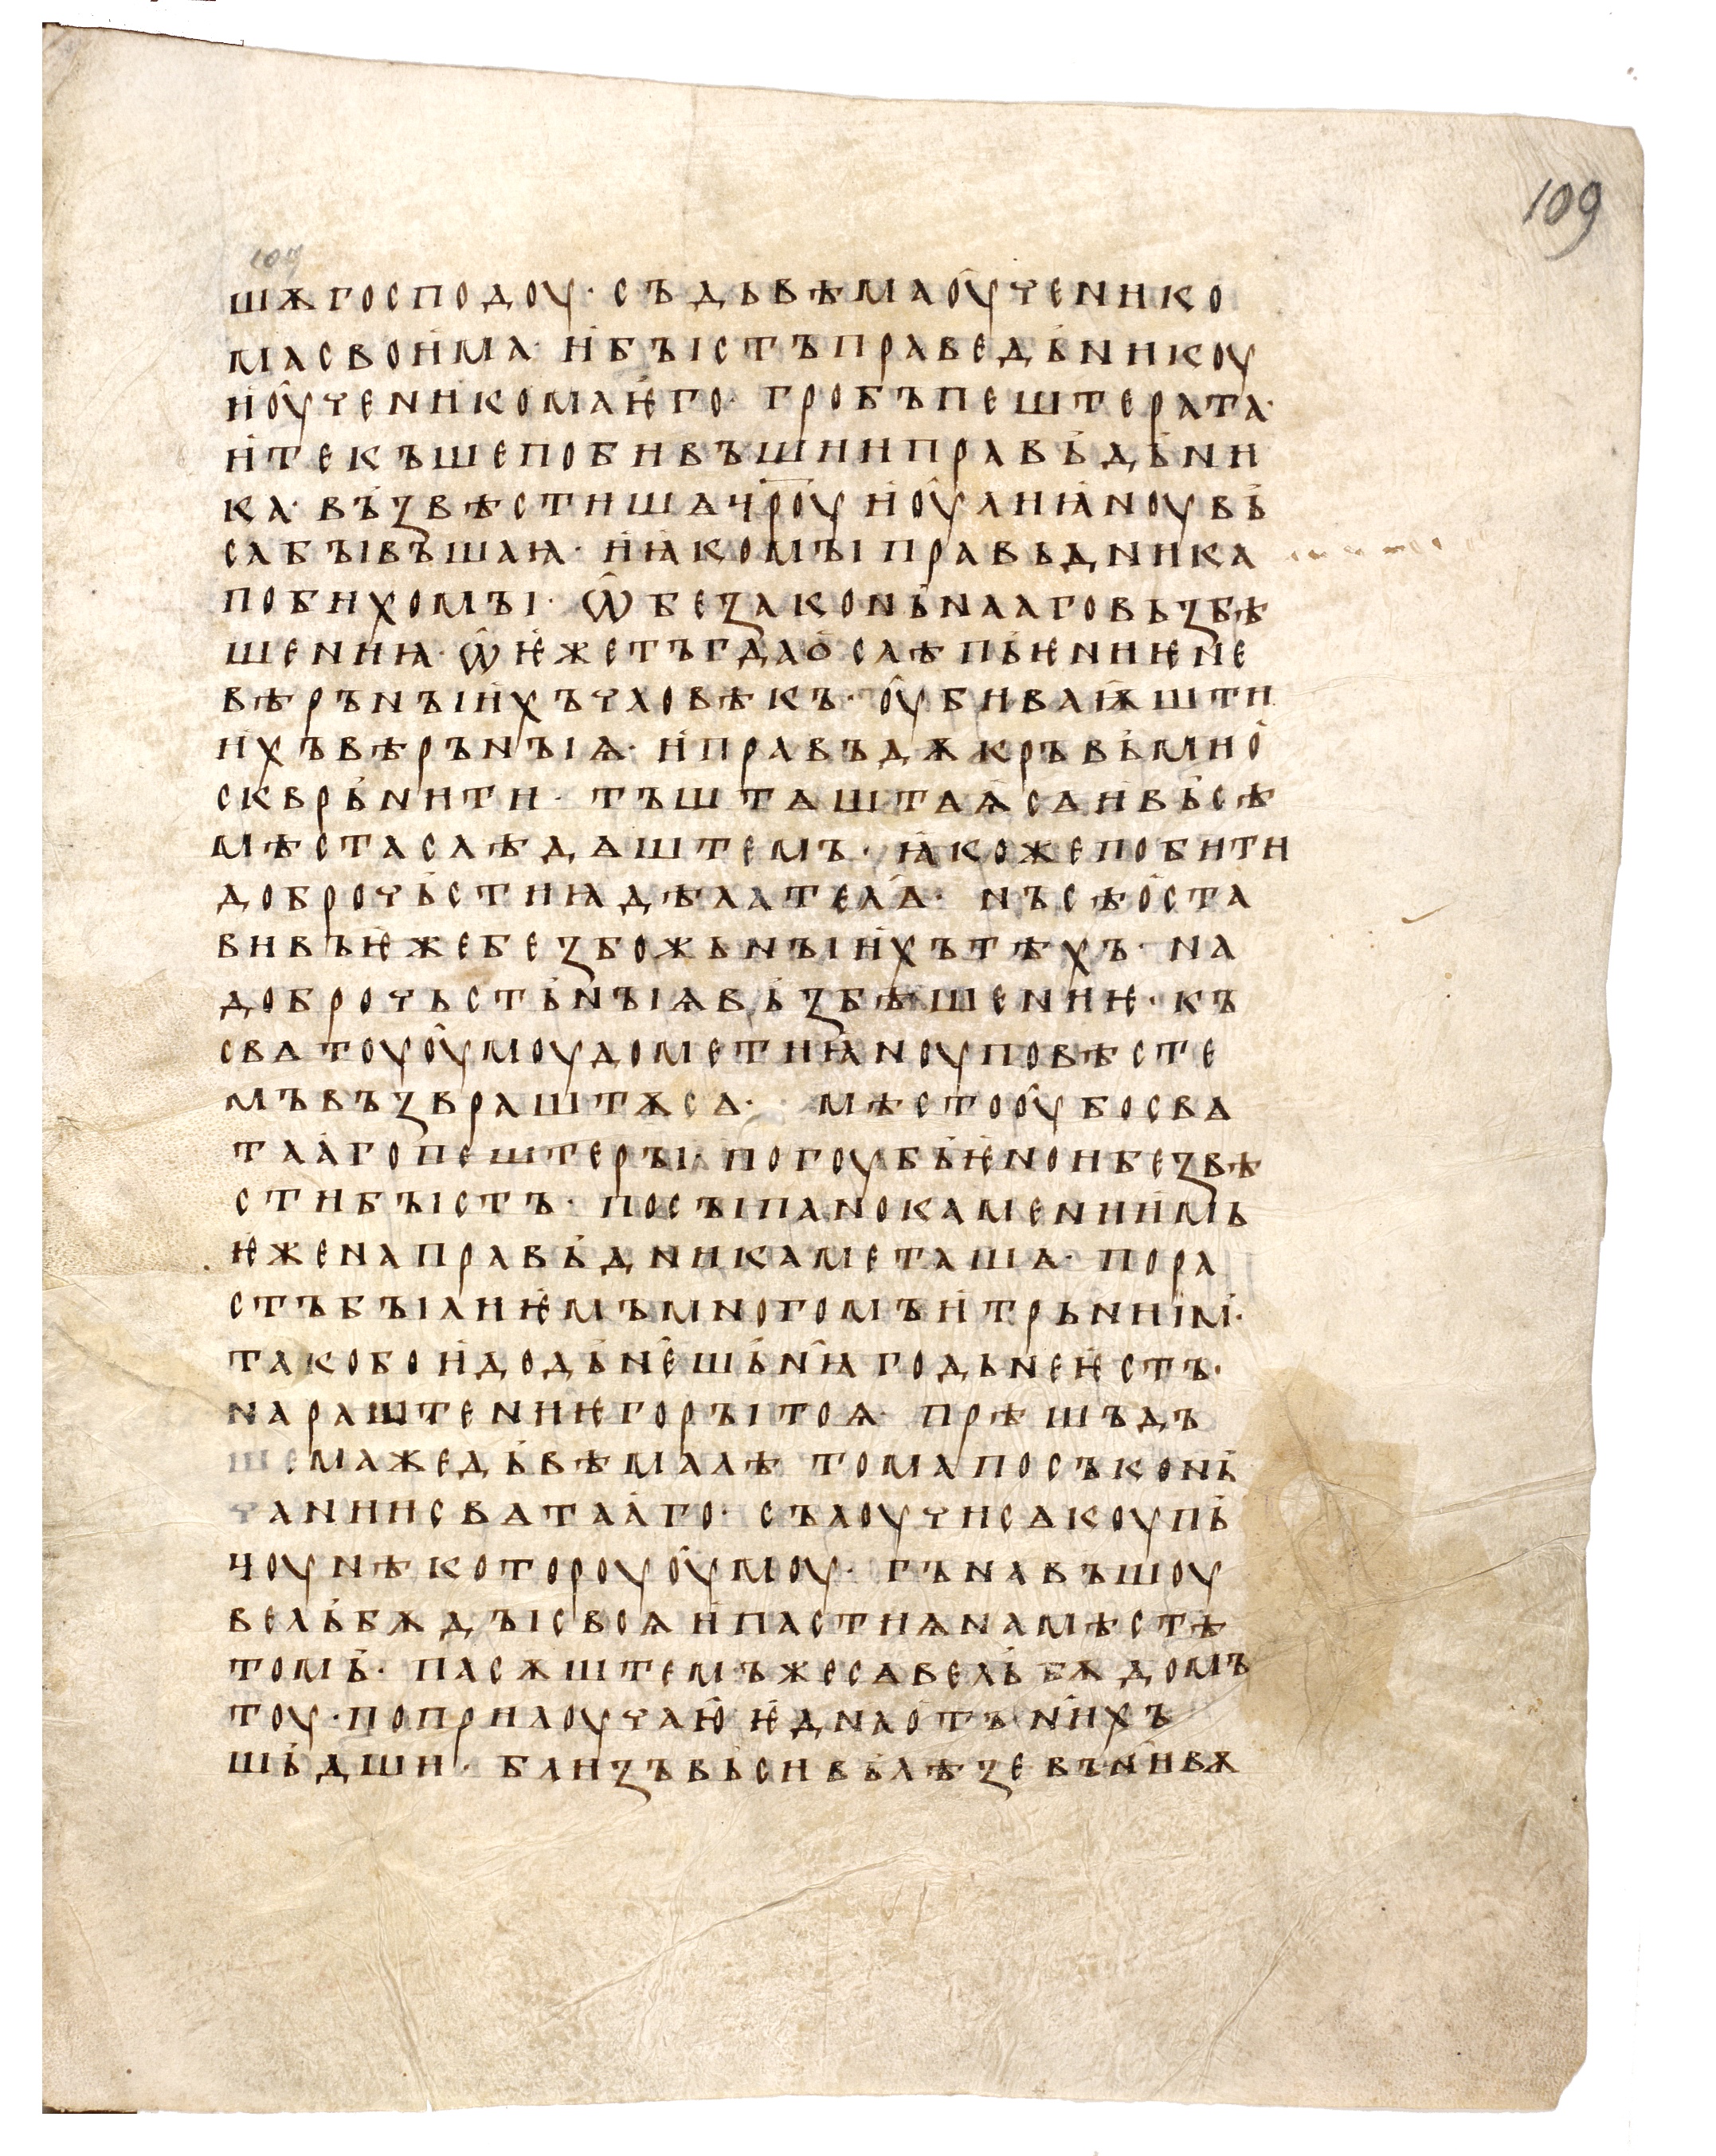 109
109
шѫ господоу· съ дъвѣма оу҆ченико
ма своима· и҆ бꙑстъ праведь҆никоу
и҆ оу҆ченикома ѥ҆го· гробъ пештера та·
и҆ текъше побивъшии правь҆дь҆ни
ка· въ҆звѣстишѧ ц҆роу и҆ оу҆лиꙗ҆ноу вь҆
са бꙑвъшаꙗ· и҆ ꙗ҆ко мꙑ правьдника
побихомꙑ· ѡ҆ безаконь҆нааго възбѣ
шениꙗ· ѡ҆ ѥ҆же тъгда о҆слѣпь҆ѥниѥ не
вѣрънꙑи҆хъ чловѣкъ· оу҆биваѭшти
ихъ вѣрънꙑѩ· и҆ правъдѫ кръвь҆мио҆
сквръ҆нити· тъштѧштаꙗ҆ сѧ и҆ вь҆сѣ
мѣста слѣдѧштемъ· ꙗ҆коже побити
доброчь҆стиꙗ дѣлателѧ҆· нъ сѣ о҆ста
вивъ ѥ҆же безбожьнꙑи҆хъ тѣхъ· на
доброчьсть҆нꙑѩ въ҆збѣшениѥ· къ
свѧтоуоу҆моу дометиꙗ҆ноу повѣсте
мъ възвраштѫ сѧ· мѣсто оу҆бо свѧ
таа҆го пештерꙑ· погоубь҆ѥ҆но и безвѣ
сти бꙑстъ· посꙑпано камениимь
ѥ҆же на правь҆дника меташѧ· пора
стъ бꙑлиѥ҆мъ многомъ и҆ трьниім҆·
тако бо и҆ до дь҆не҆шь҆н҆ꙗ годьне ѥ҆стъ·
нараштениѥ горꙑ тоѩ· прѣшъдъ
шема же дь҆вѣма лѣтома по съконь҆
чании свѧтаа҆го· сълоучи сѧ коупь҆
цоу нѣкотороуоу҆моу· гънавъшоу
вель҆бѫдꙑ своѩ и҆ пастиѩ на мѣстѣ
томь҆· пасѫштемъ же сѧ вель҆бѫдомъ
тоу· по прилоучаю҆ ѥ҆дина о҆тъ н҆ихъ
шь҆дши· близъ вь҆си вь҆лѣзе въ н҆ивѫ